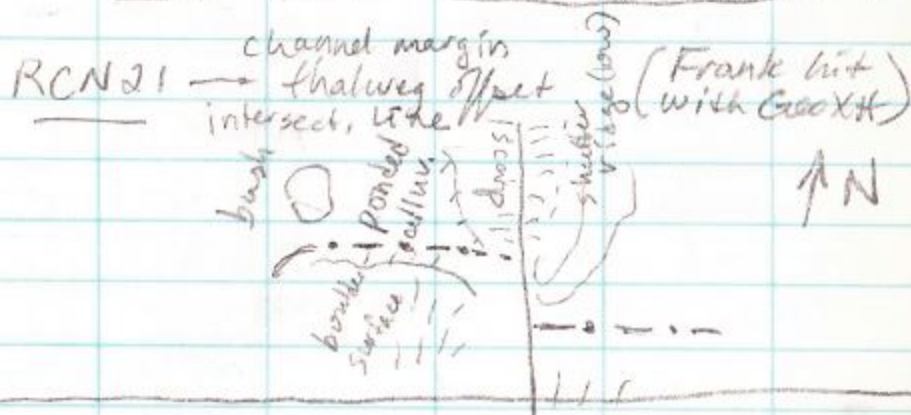 channel margin
RCN21 → thalweg offset
intersect. line
(Frank hit
with GeoXH)
bush
ponded
alluv.
scarp
shutter
ridge (low)
↑ N
boulder
surface